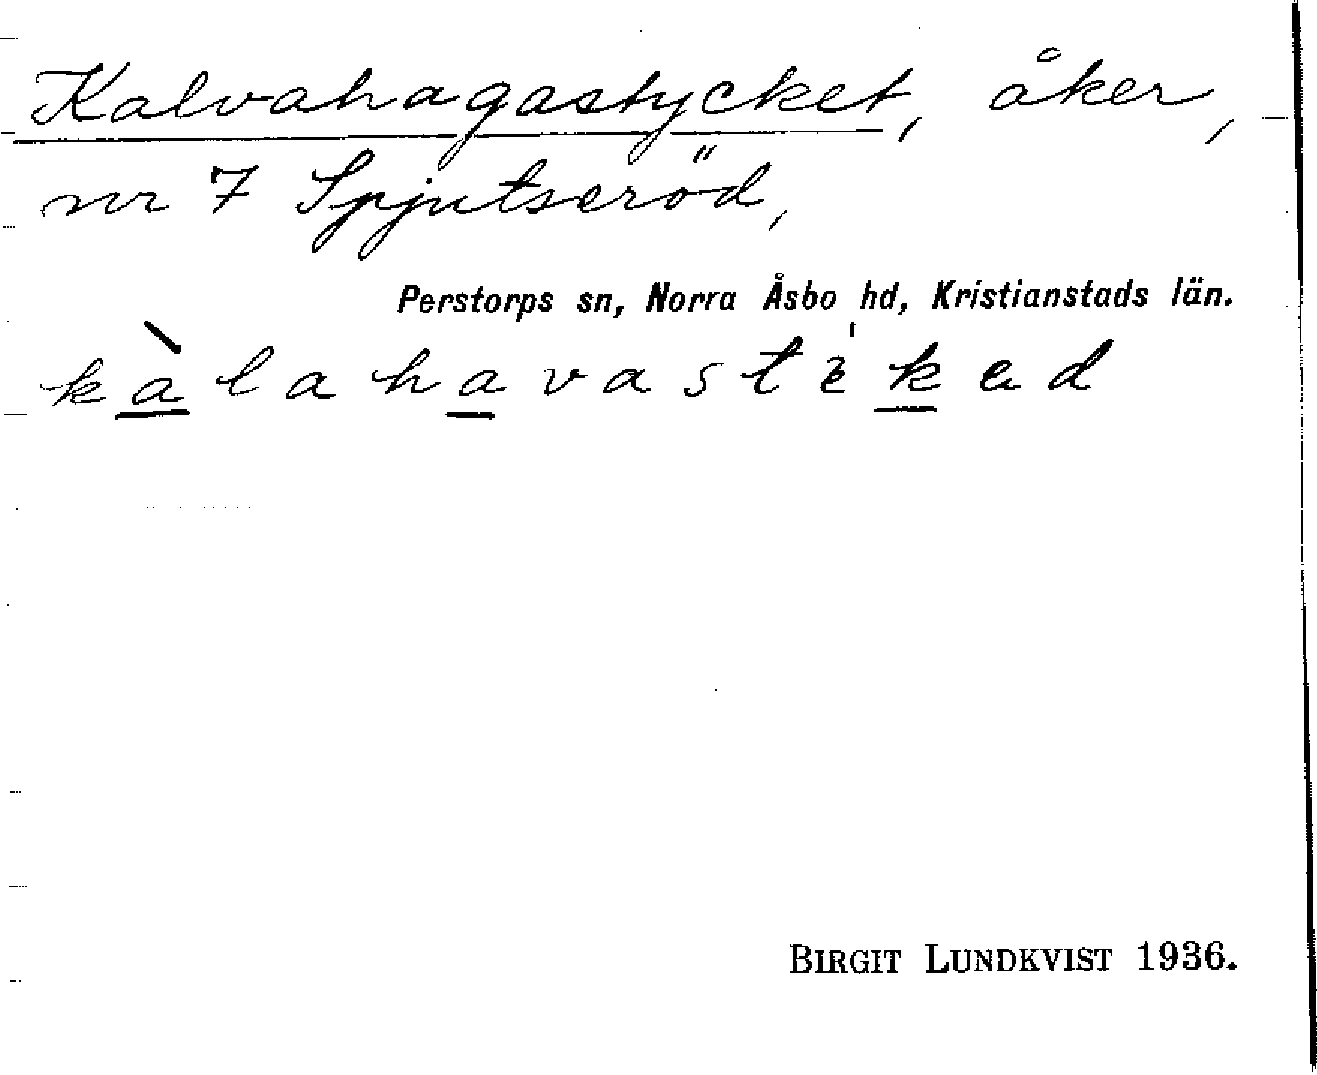 Kalvahagastycket, åker,
nr 7 Spjutseröd,
Perstorps sn, Norra Åsbo hd, Kristianstads län.
BIRGIT LUNDKVIST 1936.